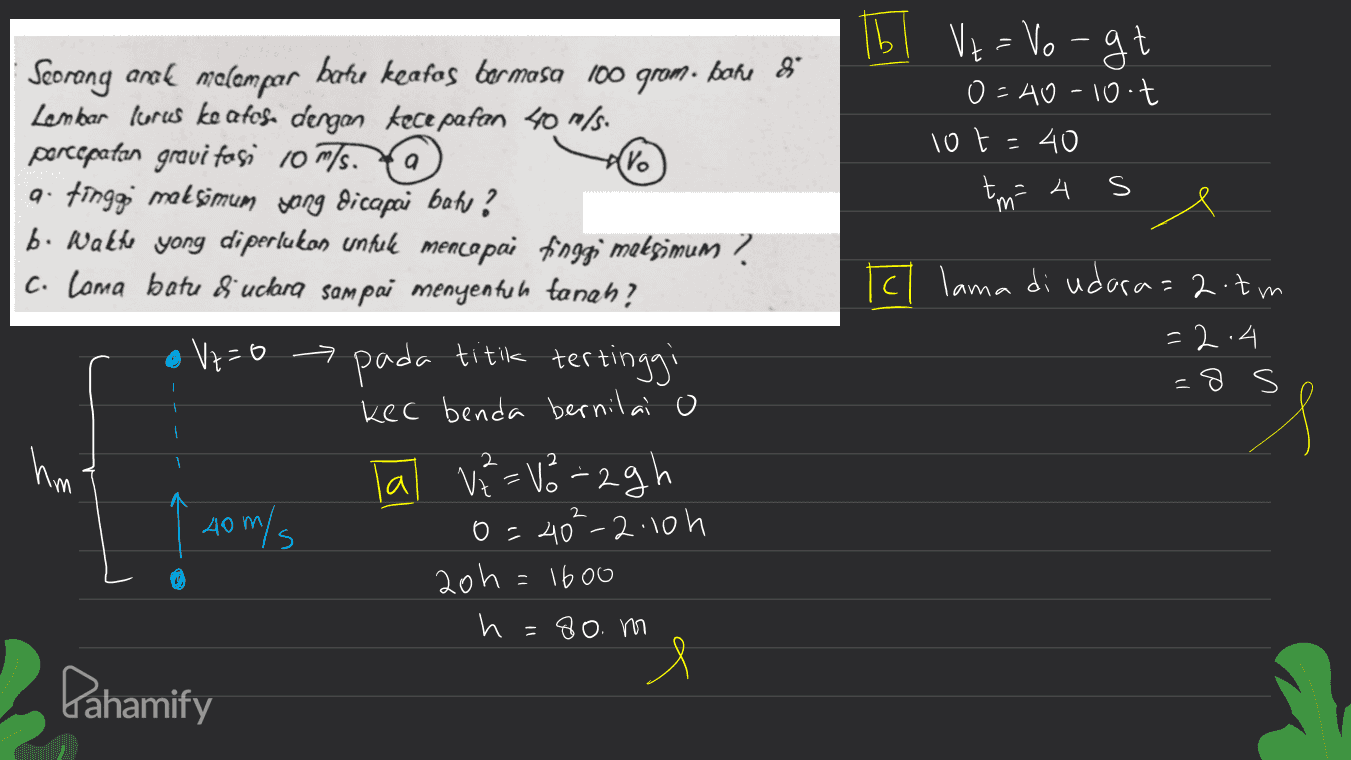 Seorang anak melempar batu keatas bermasa 100 gram. batu di
Lembar lurus ke atas dengan kecepatan 40 m/s.
percepatan gravitasi 10 m/s. a Vo
a. tinggi maksimum yang dicapai batu?
b. Waktu yang diperlukan untuk mencapai tinggi maksimum?
c. Lama batu di udara sampai menyentuh tanah?
Vt = 0 → pada titik tertinggi
kec benda bernilai 0
hm
40 m/s
a Vt² = Vo² - 2gh
0 = 40² - 2.10h
20h = 1600
h = 80. m
b Vt = Vo - gt
0 = 40 - 10.t
10 t = 40
tm = 4 s
c lama di udara = 2.tm
= 2.4
= 8 s
Pahamify